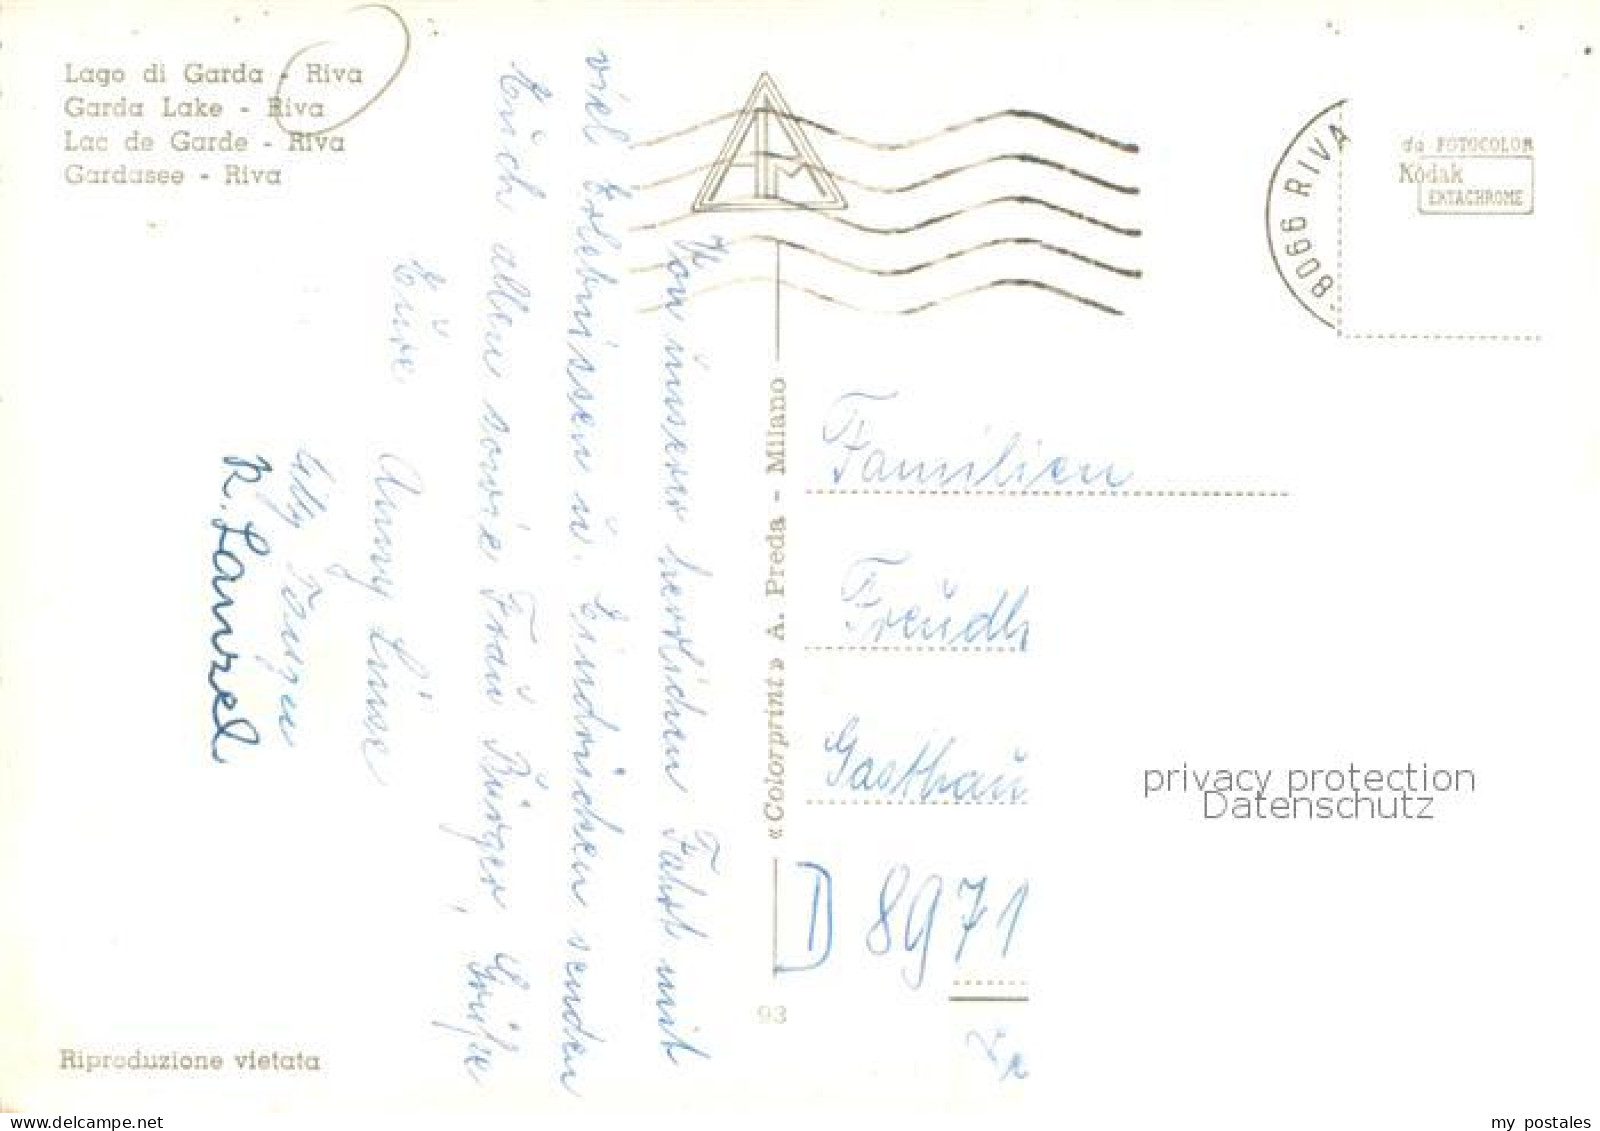 Lago di Garda - Riva
Garda Lake - Riva
Lac de Garde - Riva
Gardasee - Riva
8066 RIVA
da FOTOCOLOR
Kodak
EKTACHROME
Von ünserer herrlichen Fahrt mit
viel Erlebnissen ü. Eindrücken senden
Eüch allen sowie Fraü Bürger, Grüße
Eüre
Anny Luise
R. Lanzel
«Colorprint» A. Preda - Milano
93
Familien
Freüdh
Gasthaü
D 8971
privacy protection
Datenschutz
Riproduzione vietata
www.delcampe.net
my_postales